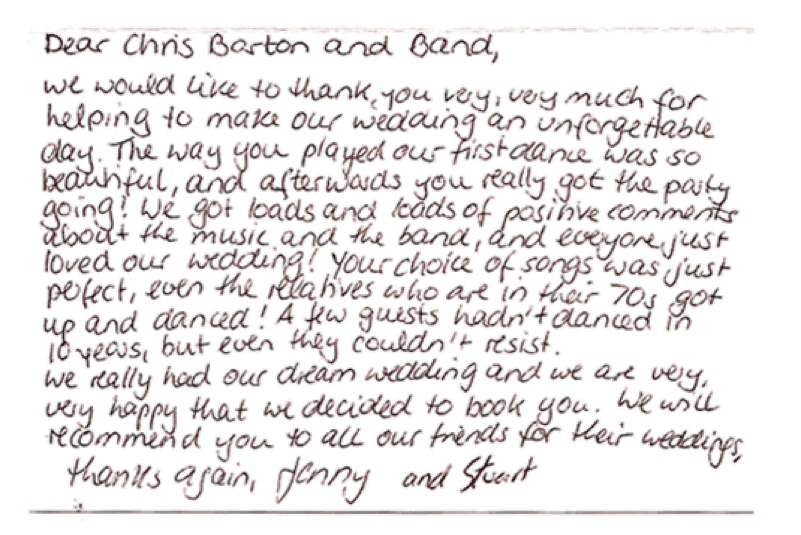 Dear Chris Barton and Band,
we would like to thank you very, very much for
helping to make our wedding an unforgettable
day. The way you played our first dance was so
beautiful, and afterwards you really got the party
going! We got loads and loads of positive comments
about the music and the band, and everyone just
loved our wedding! Your choice of songs was just
perfect, even the relatives who are in their 70s got
up and danced! A few guests hadn't danced in
10 years, but even they couldn't resist.
We really had our dream wedding and we are very,
very happy that we decided to book you. We will
recommend you to all our friends for their weddings,
thanks again, Jenny and Stuart